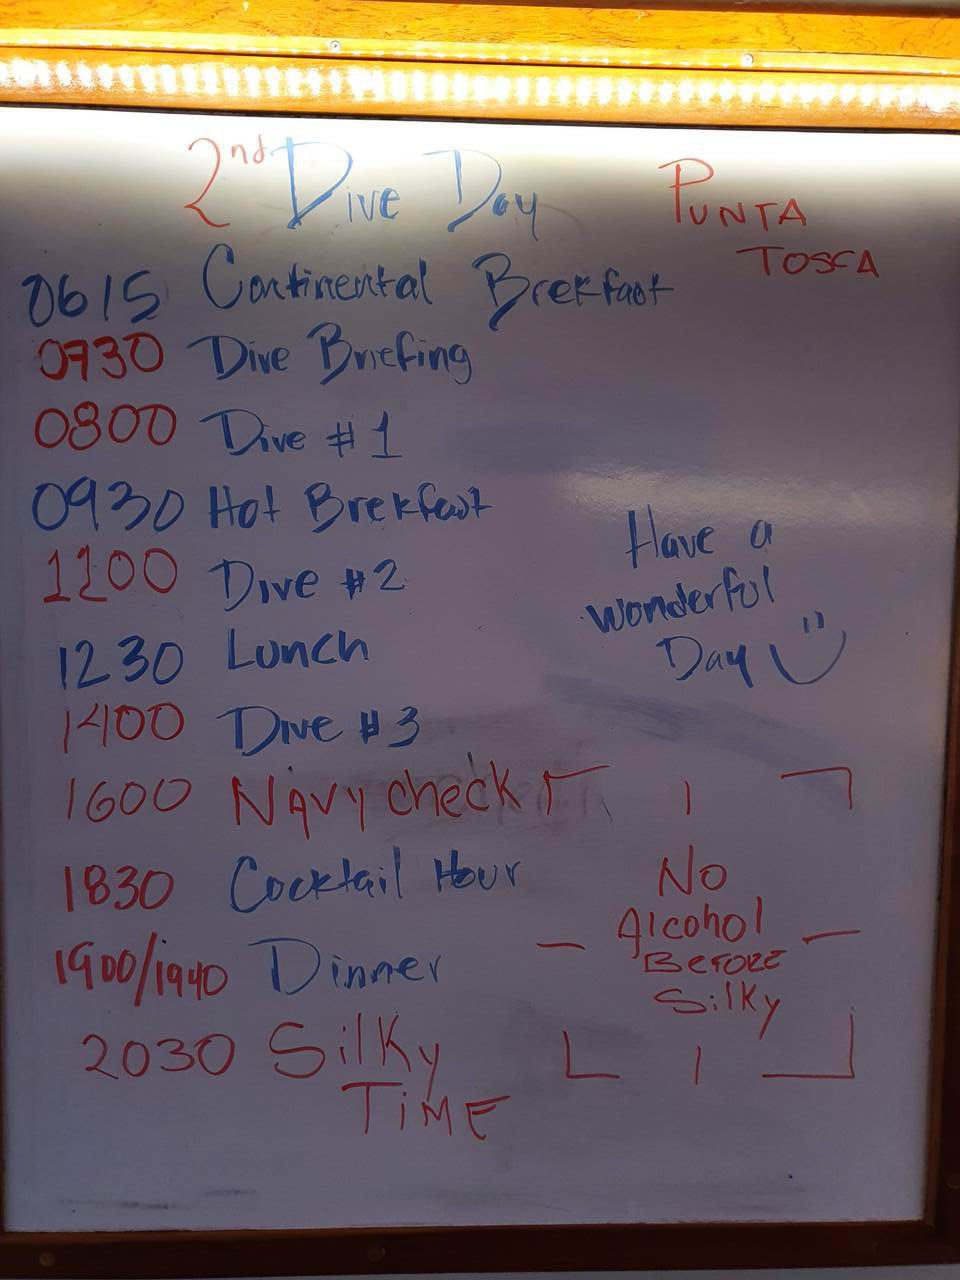 2nd Dive Day
PUNTA
TOSCA
0615 Continental Brekfast
0730 Dive Briefing
0800 Dive #1
0930 Hot Brekfast
1100 Dive #2
1230 Lunch
1400 Dive #3
1600 NAVY check
1830 Cocktail Hour
1900/1940 Dinner
2030 Silky
TIME
Have a
wonderful
Day
No
Alcohol
BEFORE
Silky